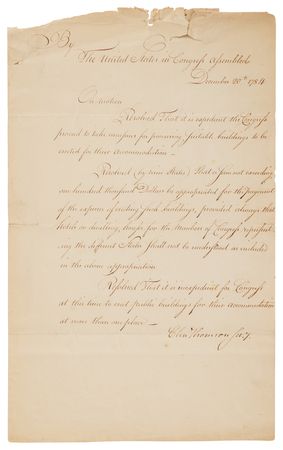 By
The United States in Congress Assembled
December 20th 1784
On motion
Resolved That it is expedient the Congress
proceed to take measures for procuring suitable buildings to be
erected for their accommodation —
Resolved (by nine States) That a sum not exceeding
one hundred thousand Dollars be appropriated for the payment
of the expence of erecting such buildings, provided always that
hotels or dwelling houses for the Members of Congress represent
ing the different States shall not be understood as included
in the above appropriation
Resolved That it is inexpedient for Congress
at this time to erect public buildings for their accommodation
at more than one place —
Chas Thomson Secy.